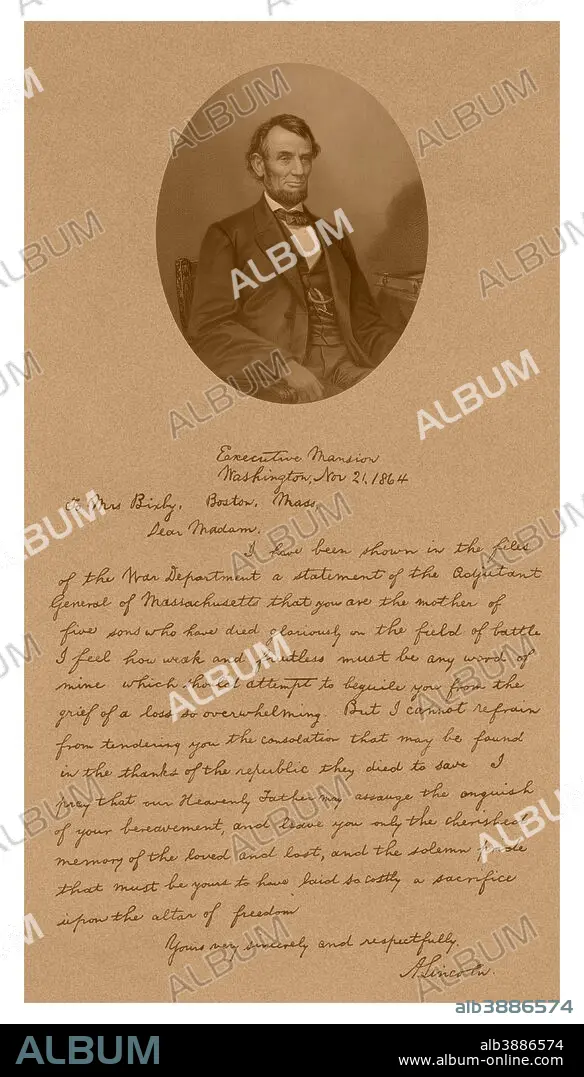 Executive Mansion
Washington, Nov 21, 1864
To Mrs Bixby, Boston, Mass,
Dear Madam,
I have been shown in the files
of the War Department a statement of the Adjutant
General of Massachusetts that you are the mother of
five sons who have died gloriously on the field of battle
I feel how weak and fruitless must be any word of
mine which should attempt to beguile you from the
grief of a loss so overwhelming. But I cannot refrain
from tendering you the consolation that may be found
in the thanks of the republic they died to save I
pray that our Heavenly Father may assuage the anguish
of your bereavement, and leave you only the cherished
memory of the loved and lost, and the solemn pride
that must be yours to have laid so costly a sacrifice
upon the altar of freedom
Yours very sincerely and respectfully,
A. Lincoln.
alb3886574
ALBUM
alb3886574
www.album-online.com